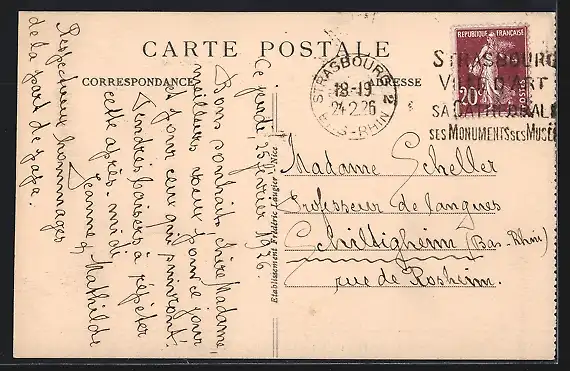 CARTE POSTALE
CORRESPONDANCE
ADRESSE
Ce jeudi, 25 février 1926.
Bons souhaits, chère Madame,
meilleurs vœux pour ce jour
et pour ceux qui suivront!
Tendres baisers à répéter
cette après-midi
Jeanne & Mathilde
Respectueux hommages
de la part de papa.
Etablissement Frédéric Laugier - Nice
STRASBOURG 2
18-19
24 2 26
BAS-RHIN
RÉPUBLIQUE FRANÇAISE
20c
POSTES
STRASBOURG
VILLE D'ART
SA CATHEDRALE
SES MONUMENTS SES MUSÉE
Madame Scheller
Professeur de langues
Schiltigheim (Bas-Rhin)
rue de Rosheim.